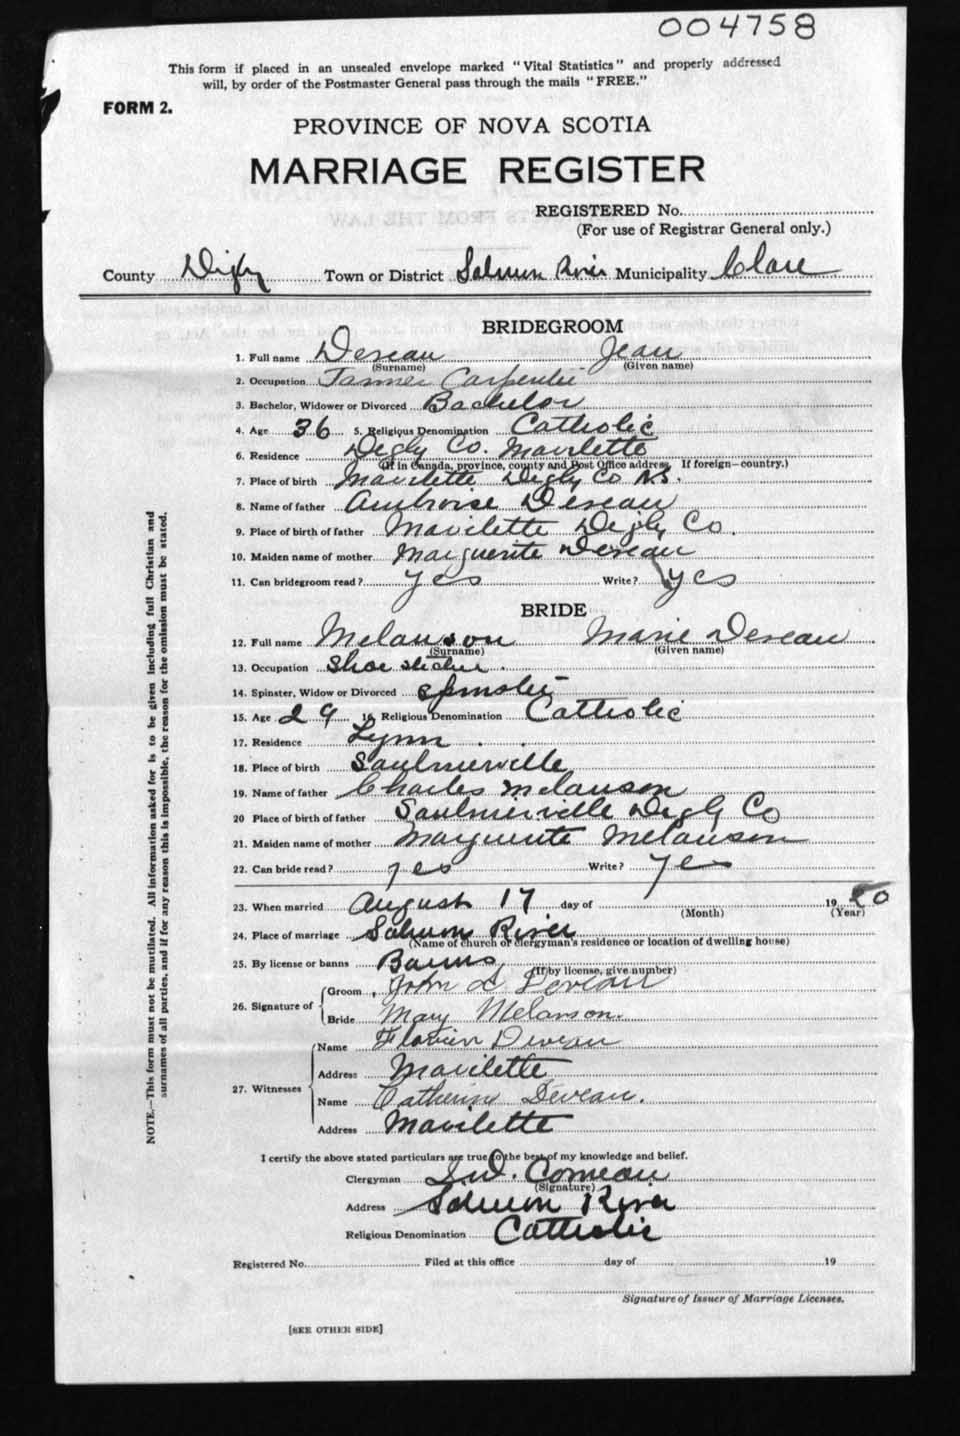 004758
This form if placed in an unsealed envelope marked "Vital Statistics" and properly addressed
will, by order of the Postmaster General pass through the mails "FREE."
FORM 2.
PROVINCE OF NOVA SCOTIA
MARRIAGE REGISTER
REGISTERED No.
(For use of Registrar General only.)
County Digby Town or District Salmon River Municipality Clare
BRIDEGROOM
1. Full name Deveau Jean
(Surname) (Given name)
2. Occupation Carpenter
3. Bachelor, Widower or Divorced Bachelor
4. Age 36 5. Religious Denomination Catholic
6. Residence Digby Co. Mavilette
(If in Canada, province, county and Post Office address. If foreign—country.)
7. Place of birth Mavilette Digby Co N.S.
8. Name of father Ambroise Deveau
9. Place of birth of father Mavilette Digby Co.
10. Maiden name of mother Marguerite Deveau
11. Can bridegroom read? yes Write? yes
BRIDE
12. Full name Melanson Marie Deveau
(Surname) (Given name)
13. Occupation Shoe
14. Spinster, Widow or Divorced Spinster
15. Age 29 16. Religious Denomination Catholic
17. Residence Lynn
18. Place of birth Saulnierville
19. Name of father Charles Melanson
20 Place of birth of father Saulnierville Digby Co
21. Maiden name of mother Marguerite Melanson
22. Can bride read? yes Write? yes
23. When married August 17 day of 1920
(Month) (Year)
24. Place of marriage Salmon River
(Name of church or clergyman's residence or location of dwelling house)
25. By license or banns Banns
(If by license, give number)
26. Signature of Groom John L Deveau
Bride Mary Melanson.
27. Witnesses Name Florien Deveau
Address Mavilette
Name Catherine Deveau.
Address Mavilette
I certify the above stated particulars are true to the best of my knowledge and belief.
Clergyman Comeau
(Signature)
Address Salmon River
Religious Denomination Catholic
Registered No. Filed at this office day of 19
Signature of Issuer of Marriage Licenses.
[SEE OTHER SIDE]
NOTE.—This form must not be mutilated. All information asked for is to be given including full Christian and
surnames of all parties, and if for any reason this is impossible, the reason for the omission must be stated.